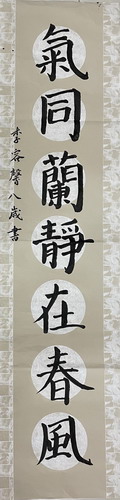 氣同蘭靜在春風
李容馨八歲書